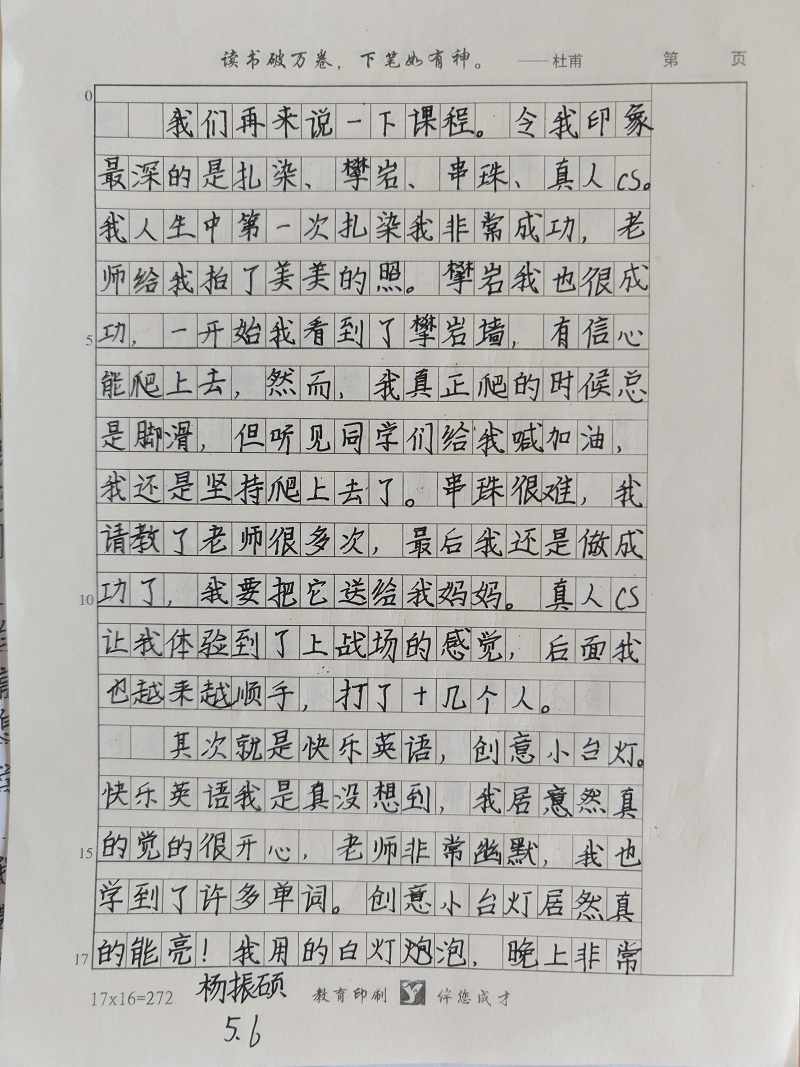 读书破万卷，下笔如有神。 ——杜甫 第 页
0
我们再来说一下课程。令我印象
最深的是扎染、攀岩、串珠、真人CS。
我人生中第一次扎染我非常成功，老
师给我拍了美美的照。攀岩我也很成
5 功，一开始我看到了攀岩墙，有信心
能爬上去，然而，我真正爬的时候总
是脚滑，但听见同学们给我喊加油，
我还是坚持爬上去了。串珠很难，我
请教了老师很多次，最后我还是做成
10 功了，我要把它送给我妈妈。真人CS
让我体验到了上战场的感觉，后面我
也越来越顺手，打了十几个人。
其次就是快乐英语，创意小台灯。
快乐英语我是真没想到，我居意然真
15 的觉的很开心，老师非常幽默，我也
学到了许多单词。创意小台灯居然真
17 的能亮！我用的白灯炮泡，晚上非常
17x16=272 杨振硕 教育印刷 伴您成才
5.6